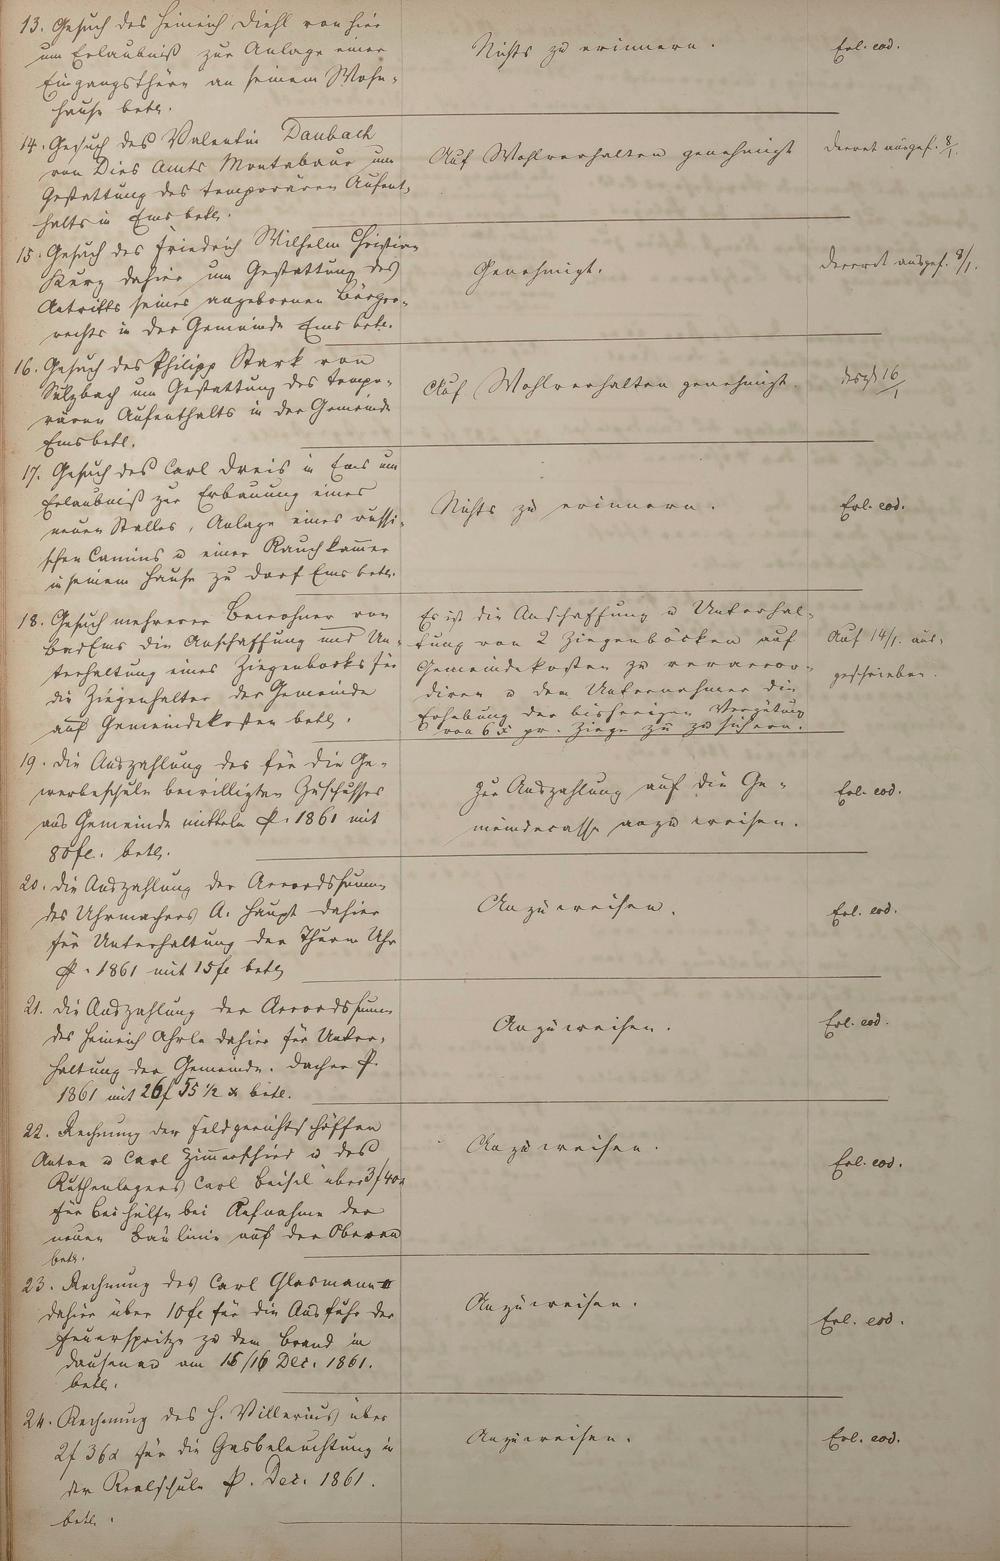 13. Gesuch des Heinrich Diehl von hier
um Erlaubniß zur Anlage einer
Eingangsthüre an seinem Wohn-
hause betr.
Nichts zu erinnern.
Erl. eod.
14. Gesuch des Valentin Daubach
von Dies Amts Montabaur um
Gestattung des temporären Aufent-
halts in Ems betr.
Auf Wohlverhalten genehmigt
Decret ausgef. 8/1.
15. Gesuch des Friedrich Wilhelm Christian
Kurz dahier um Gestattung des
Antritts seines angebornen Bürger-
rechts in der Gemeinde Ems betr.
Genehmigt.
Decret ausgef. 8/1.
16. Gesuch des Philipp Stark von
Sulzbach um Gestattung des tempo-
rären Aufenthalts in der Gemeinde
Ems betr.
Auf Wohlverhalten genehmigt.
desgl 16/1
17. Gesuch des Carl Dreis in Ems um
Erlaubniß zur Erbauung eines
neuen Stalles, Anlage eines russi-
schen Camins u einer Rauchkammer
in seinem Hause zu Dorf Ems betr.
Nichts zu erinnern.
Erl. eod.
18. Gesuch mehrerer Bewohner von
BadEms die Anschaffung und Un-
terhaltung eines Ziegenbocks für
die Ziegenhalter der Gemeinde
auf Gemeindekosten betr.
Es ist die Anschaffung u Unterhal-
tung von 2 Ziegenböcken auf
Gemeindekosten zu veraccor-
diren u dem Unternehmer die
Erhebung der bisherigen Vergütung
von 6 x pr. Ziege zu zu sichern.
Auf 14/1. aus-
geschrieben.
19. Die Auszahlung des für die Ge-
werbeschule bewilligten Zuschusses
aus Gemeindemitteln p. 1861 mit
80 fl. betr.
Zur Auszahlung auf die Ge-
meindecasse anzuweisen.
Erl. eod.
20. Die Auszahlung der Accordsumme
des Uhrmachers A. Haupt dahier
für Unterhaltung der Thurm Uhr
p. 1861 mit 15 fl betr
Anzuweisen.
Erl. eod.
21. Die Auszahlung der Accordsumme
des Heinrich Ahrle dahier für Unter-
haltung der Gemeinde-Dächer p.
1861 mit 26 f 55 1/2 x betr.
Anzuweisen.
Erl. eod.
22. Rechnung der Feldgerichtsschöffen
Anton u Carl Zimmerschied u des
Ruthenlegers Carl Beisel über 3 f 40 x
für Beihülfe bei Aufnahme der
neuen Baulinie auf der Oberau
betr.
Anzuweisen.
Erl. eod.
23. Rechnung des Carl Glasmann II
dahier über 10 fl für die Ausfuhr der
Feuerspritze zu dem Brand in
Dausenau am 15/16 Dec. 1861.
betr.
Anzuweisen.
Erl. eod.
24. Rechnung des H. Villerius über
2 f 36 x für die Gasbeleuchtung in
der Realschule p. Dec. 1861.
betr.
Anzuweisen.
Erl. eod.